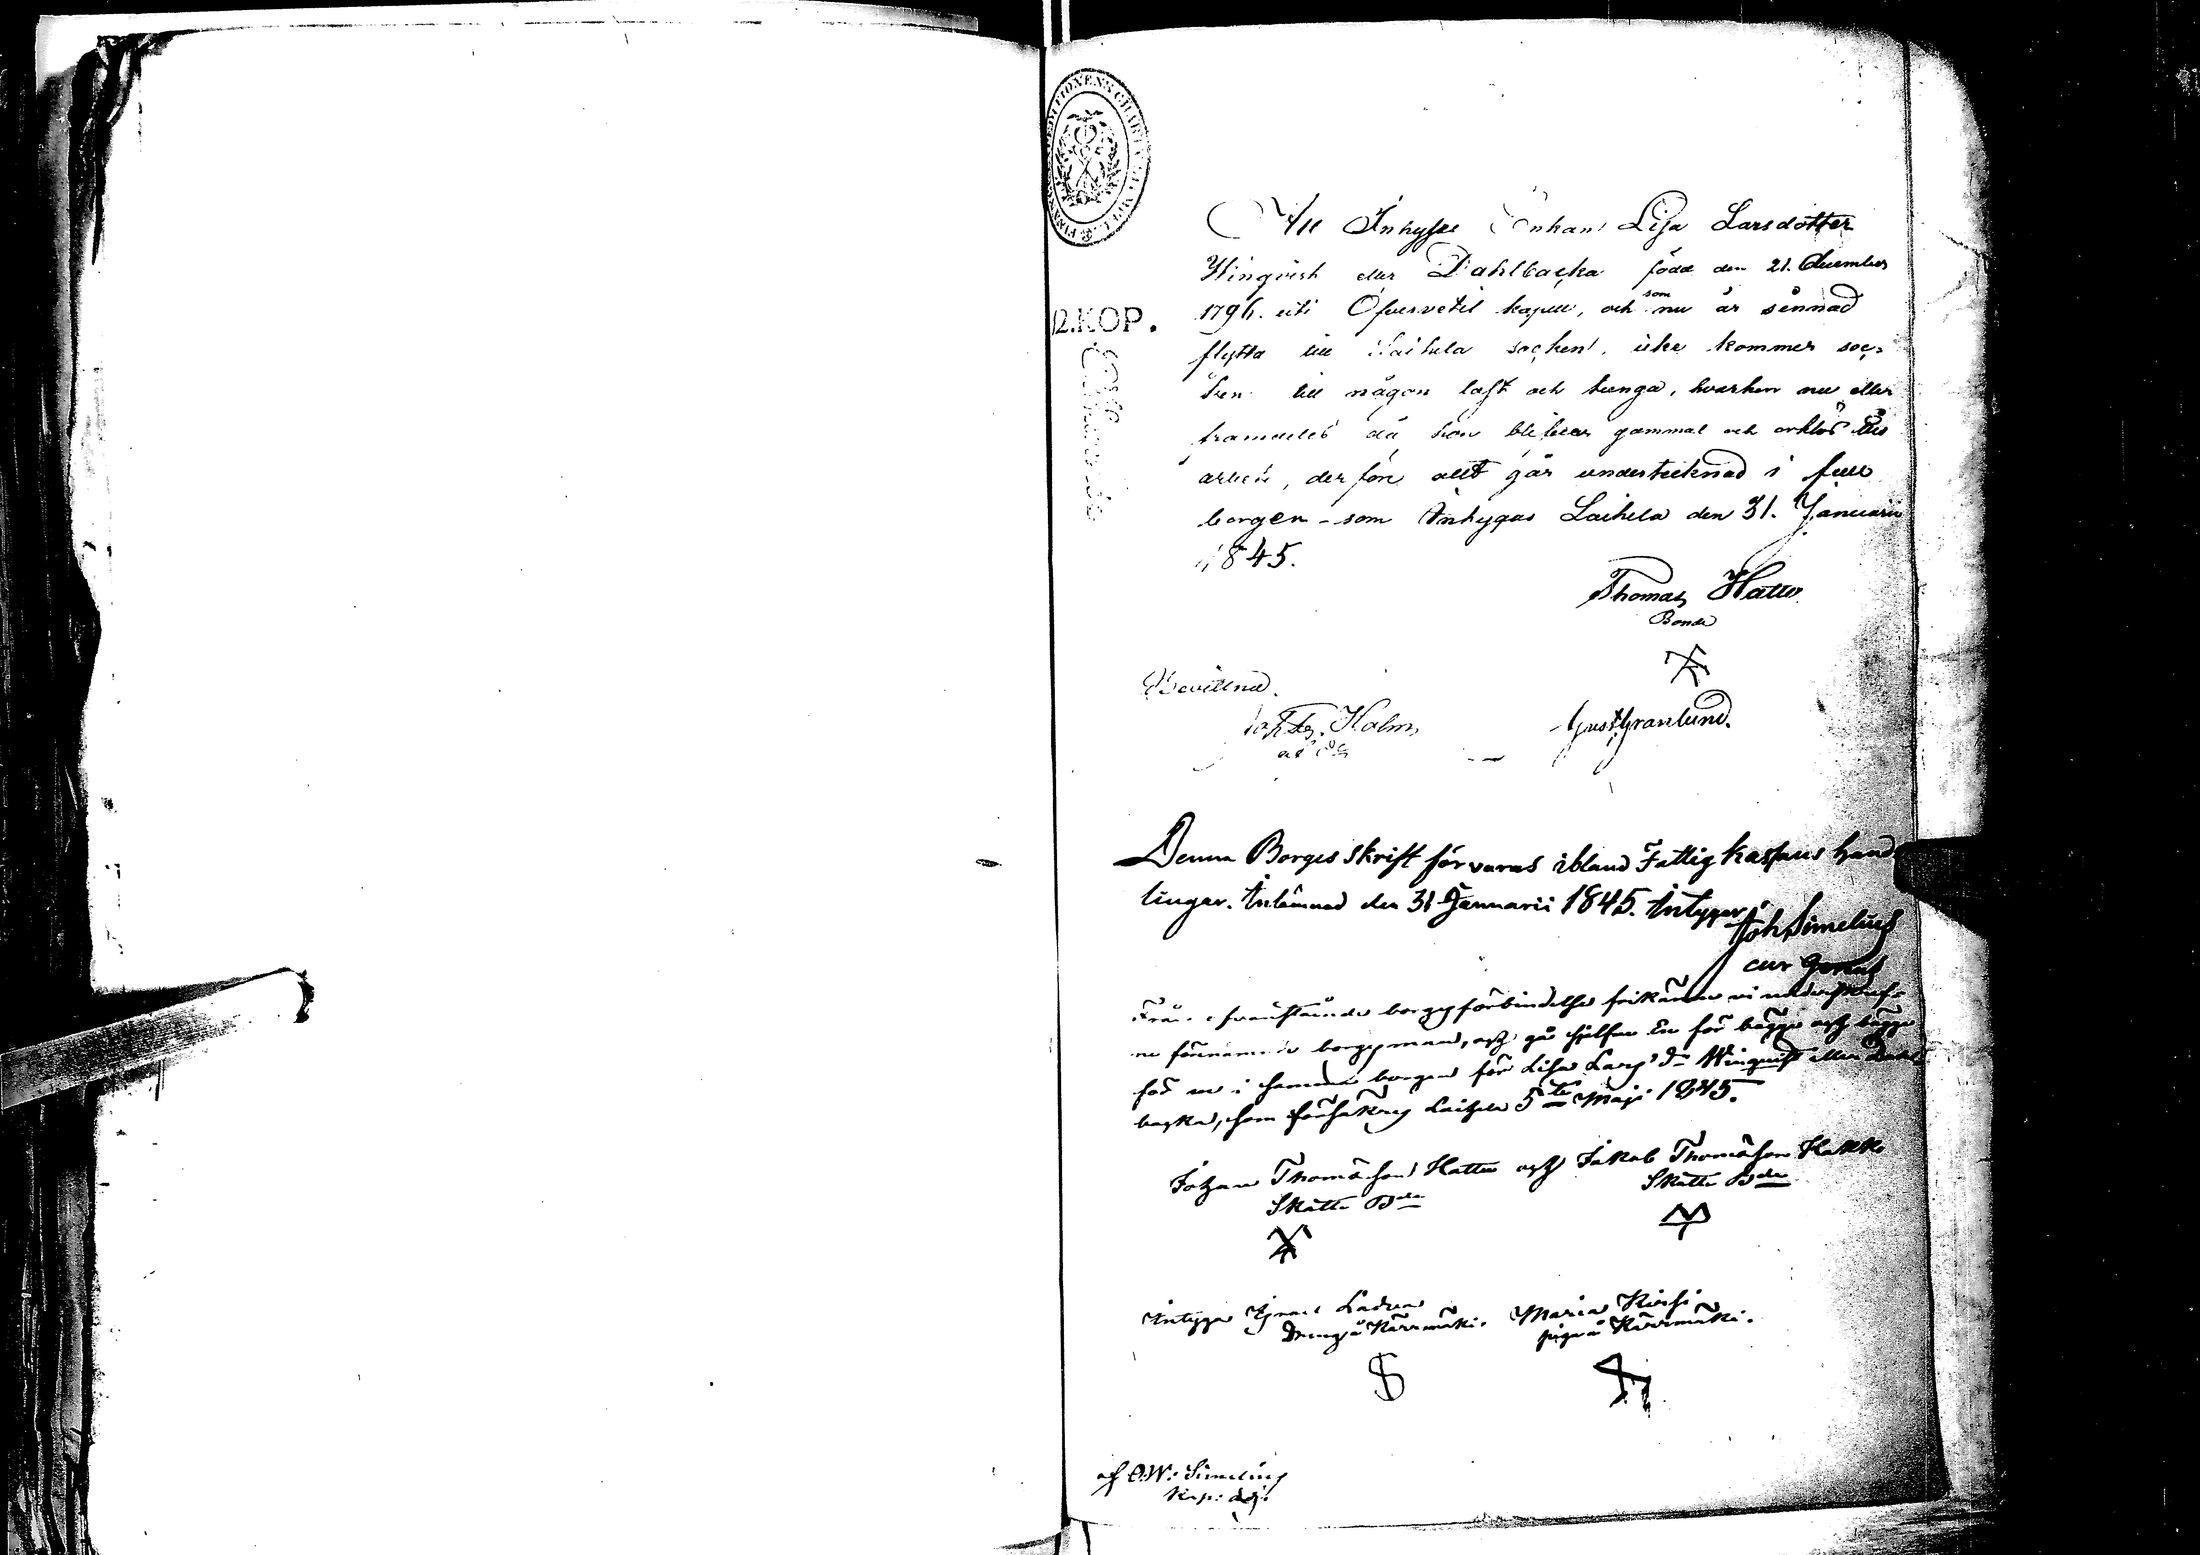 12.KOP.
Att Inhyses Enkan Lisa Larsdotter
Winqvist eller Dahlbacka född den 21. December
1796. uti Öfvervetil kapell, och som nu är sinnad
flytta till Laihela socken, icke kommer soc-
ken till någon last och tunga, hvarken nu eller
framdeles då hon blifver gammal och orklös till
arbete, derföre allt går undertecknad i full
borgen - som intygas Laihela den 31. Januarii
1845.
Thomas Hattu
Bonde
Bevittnad.
Holm
Gust. Granlund.
Denna Borges skrift förvaras ibland Fattigkassans hand-
lingar. Inlämnad den 31 Januarii 1845. Intygar
Joh Simelius
Från framstående borges förbindelse frikänna vi underskrefs-
ne förenämnde borgesman, och gå sjelfve En för bägge och bägge
för en i samma borgen för Lisa Larsdr Winquist eller Dahl
backa, som försäkras Laihela 5te Maji 1845.
Johan Thomasson Hattu och Jakob Thomasson Hakko
Skatte Bde Skatte Bde
Intyga Israel
Dräng å Kärrmäki. Maria Hirsi
piga å Kärrmäki.
af O.W. Simelius
Kap: adj: